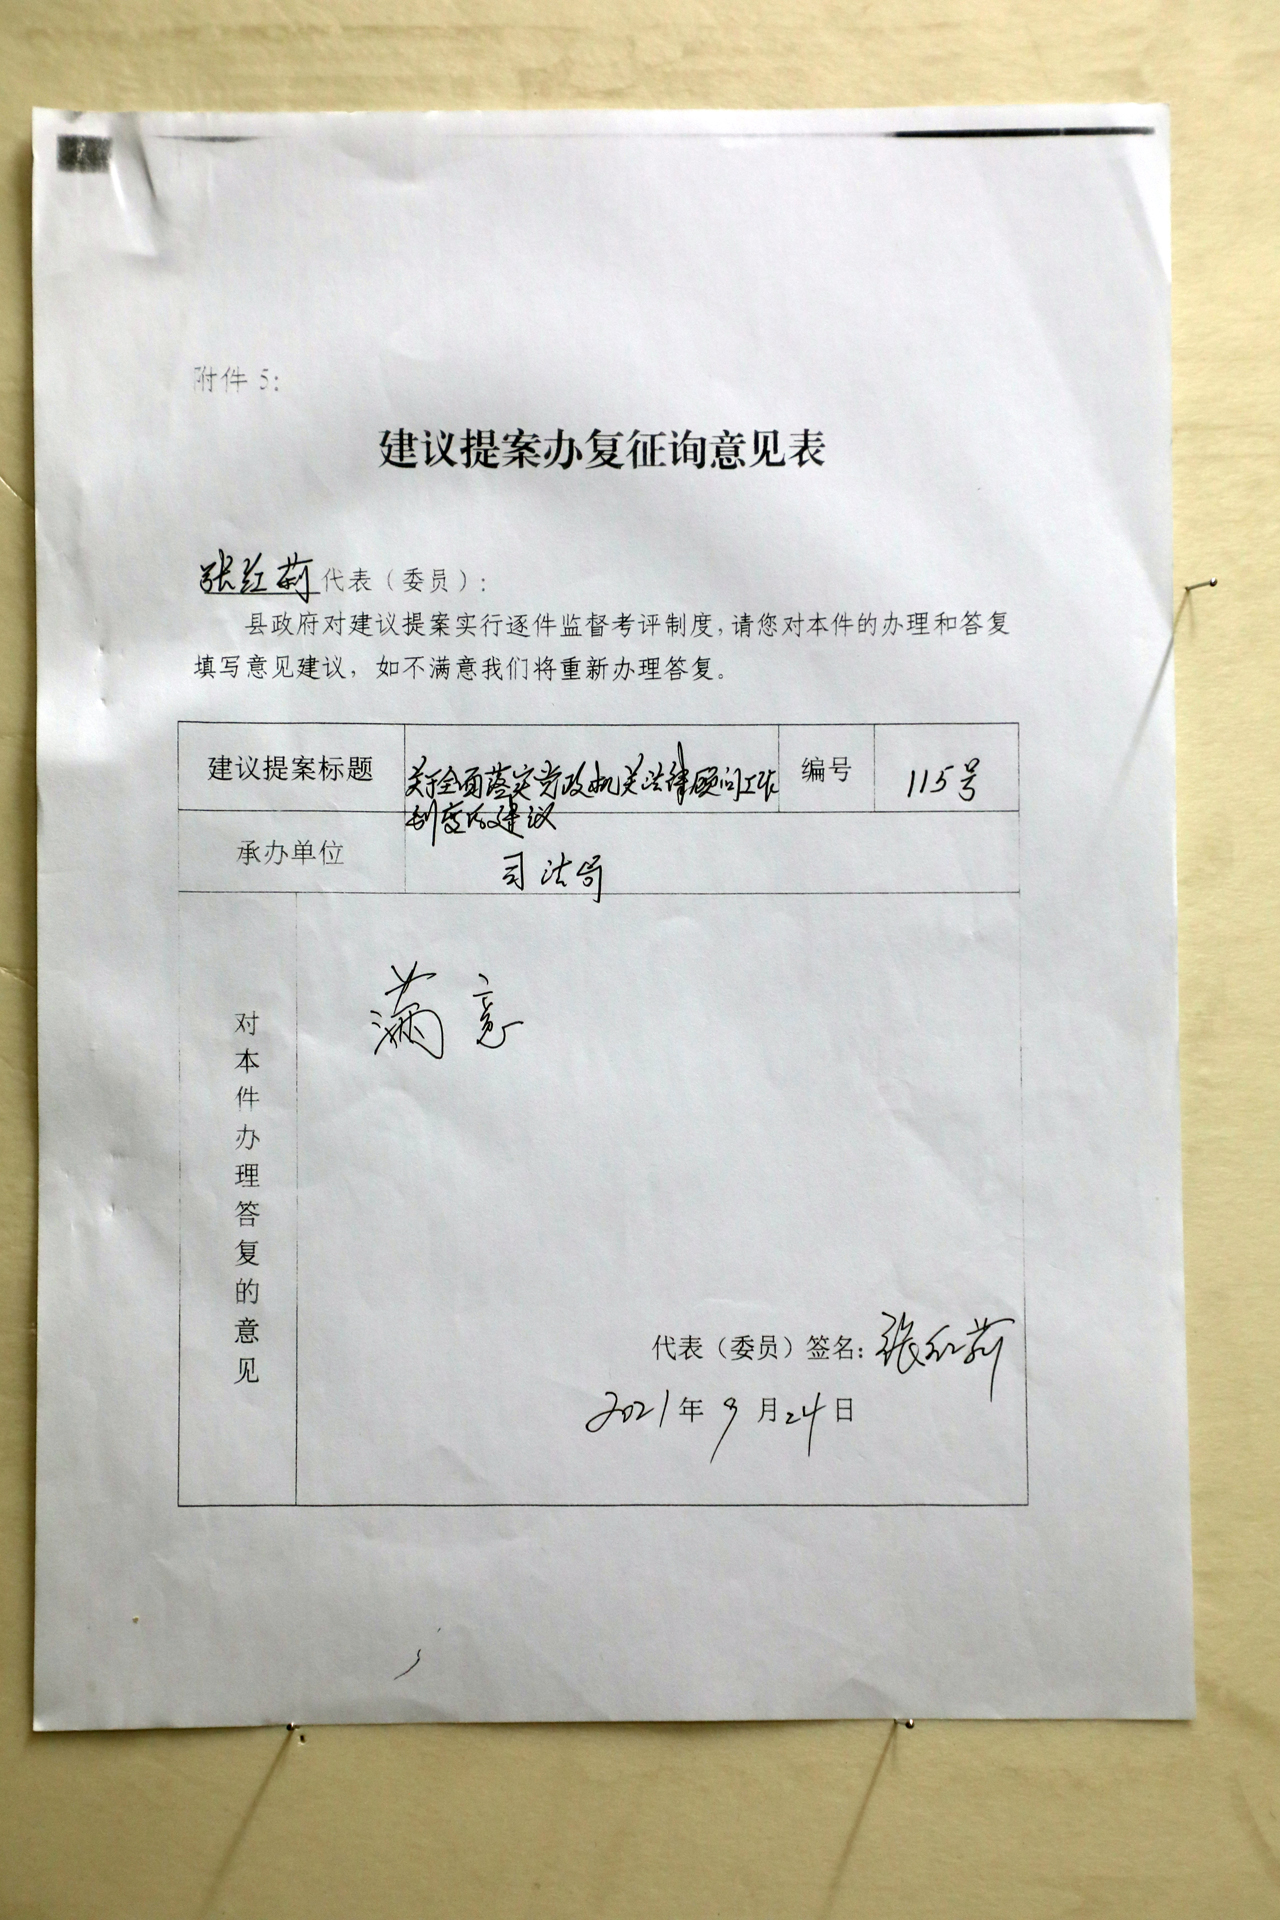 附件 5:
建议提案办复征询意见表
张红莉代表（委员）:
县政府对建议提案实行逐件监督考评制度,请您对本件的办理和答复
填写意见建议，如不满意我们将重新办理答复。
建议提案标题
关于全面落实党政机关法律顾问工作
制度的建议
编号
115号
承办单位
司法局
对本件办理答复的意见
满意
代表（委员）签名: 张红莉
2021年9月24日